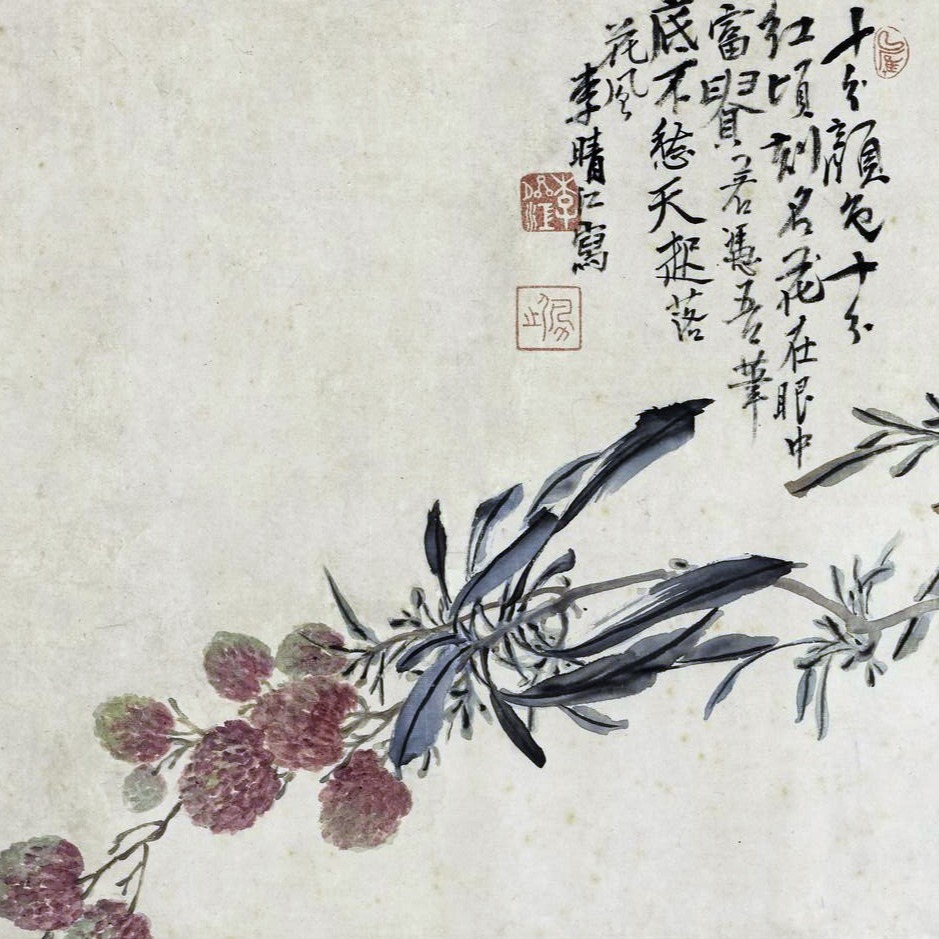 十分顏色十分
紅頃刻名花在眼中
富貴若憑吾筆
底不愁天起落
花風
李晴江寫